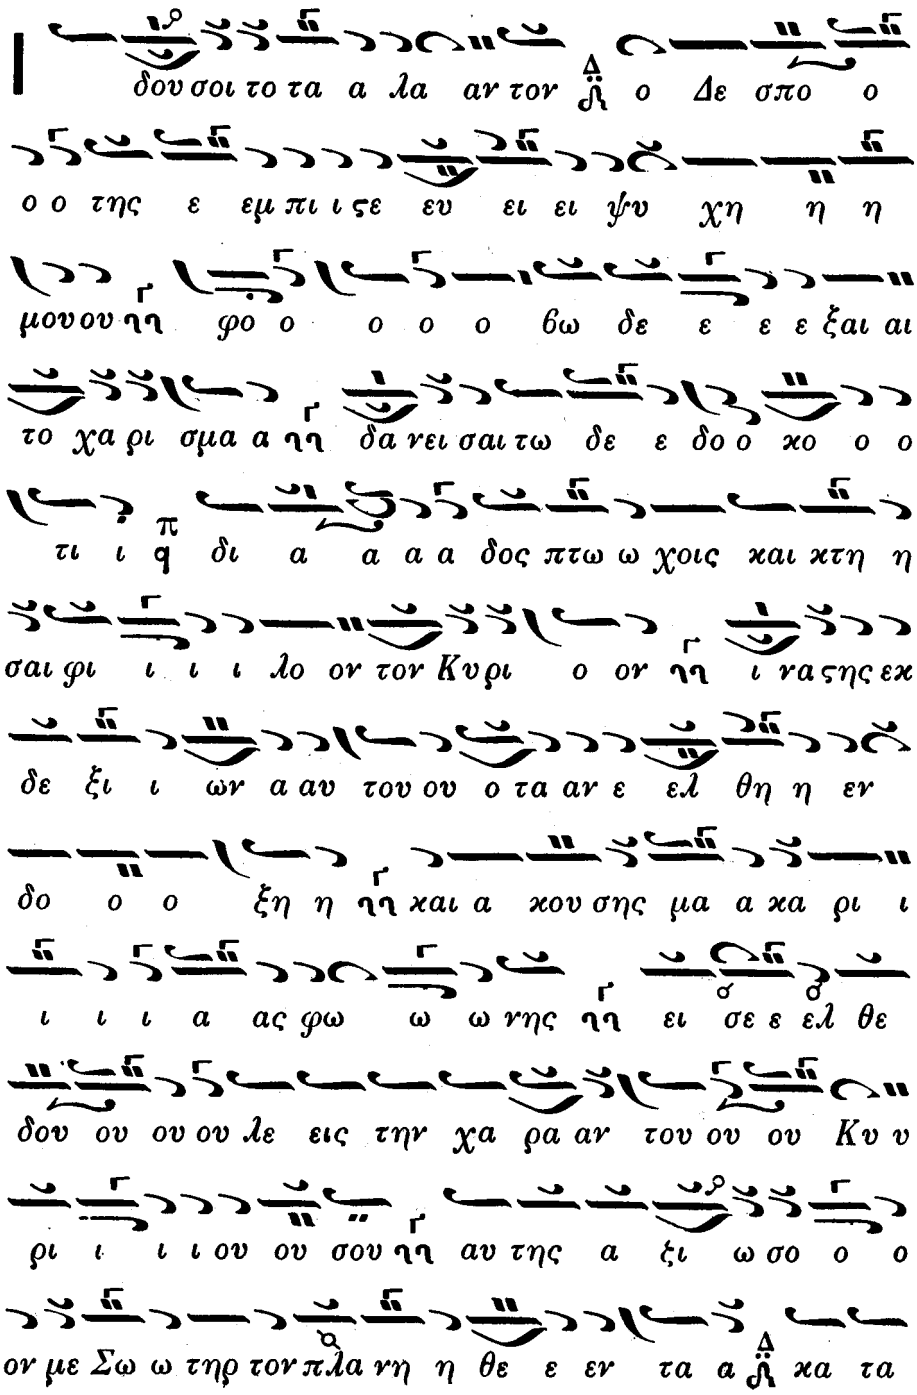 Ιδου σοι το τα α λα αν τον Δ ο Δε σπο ο
ο ο της ε εμ πι ι ςε ευ ει ει ψυ χη η η
μου ου Γ φο ο ο ο ο βω δε ε ε ε ξαι αι
το χα ρι σμα α Γ δα νει σαι τω δε ε δο ο κο ο ο
τι ι π q δι α α α α δος πτω ω χοις και κτη η
σαι φι ι ι ι λο ον τον Κυ ρι ο ον Γ ι να ςης εκ
δε ξι ι ων α αυ του ου ο τα αν ε ελ θη η εν
δο ο ο ξη η Γ και α κου σης μα α κα ρι ι
ι ι ι α ας φω ω ω νης Γ ει σε ε ελ θε
δου ου ου ου λε εις την χα ρα αν του ου ου Κυ υ
ρι ι ι ι ου ου σου Γ αυ της α ξι ω σο ο ο
ον με Σω ω τηρ τον πλα νη η θε ε εν τα α Δ κα τα